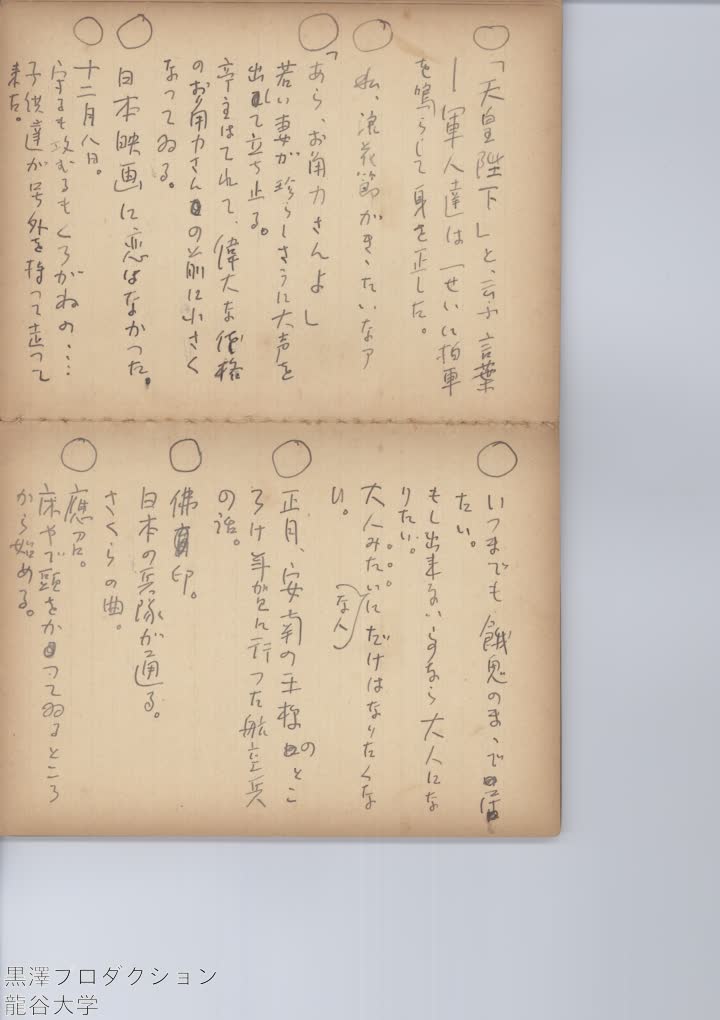 「天皇陛下」と、云ふ言葉
―軍人達は一せいに拍車
を鳴らして身を正した。
私、浪花節がきゝたいなア
「あら、お角力さんよ」
若い妻が珍らしさうに大声を
出して立ち止る。
亭主はてれて、偉大な体格
のお角力さんの前に小さく
なってゐる。
日本映画に恋はなかった。
十二月八日。
守るも攻むるもくろがねの....
子供達が号外を持って走って
来た。
いつまでも餓鬼のまゝで
たい。
もし出来るいらするなら大人にな
りたい。
大人みたいにだけはなりたくな
い。
な人
正月、安南の王様のとこ
ろけ年がに行った航空兵
の話。
佛印。
日本の兵隊が通る。
さくらの曲。
應召。
床やで頭をかってゐるところ
から始める。
黒澤プロダクション
龍谷大学